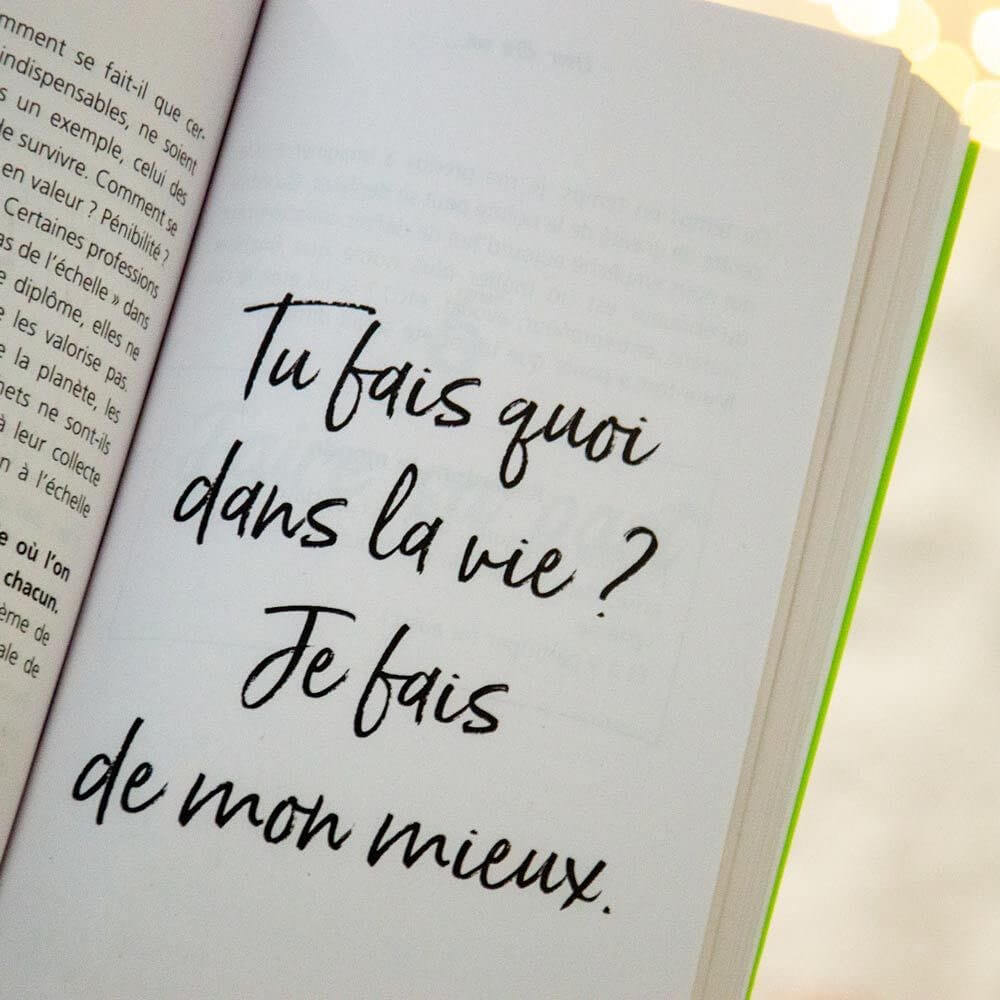 mment se fait-il que cer-
indispensables, ne soient
s un exemple, celui des
de survivre. Comment se
en valeur ? Pénibilité ?
Certaines professions
as de l'échelle » dans
diplôme, elles ne
les valorise pas.
la planète, les
ne sont-ils
à leur collecte
à l'échelle
où l'on
chacun.
de
de
Tu fais quoi
dans la vie ?
Je fais
de mon mieux.